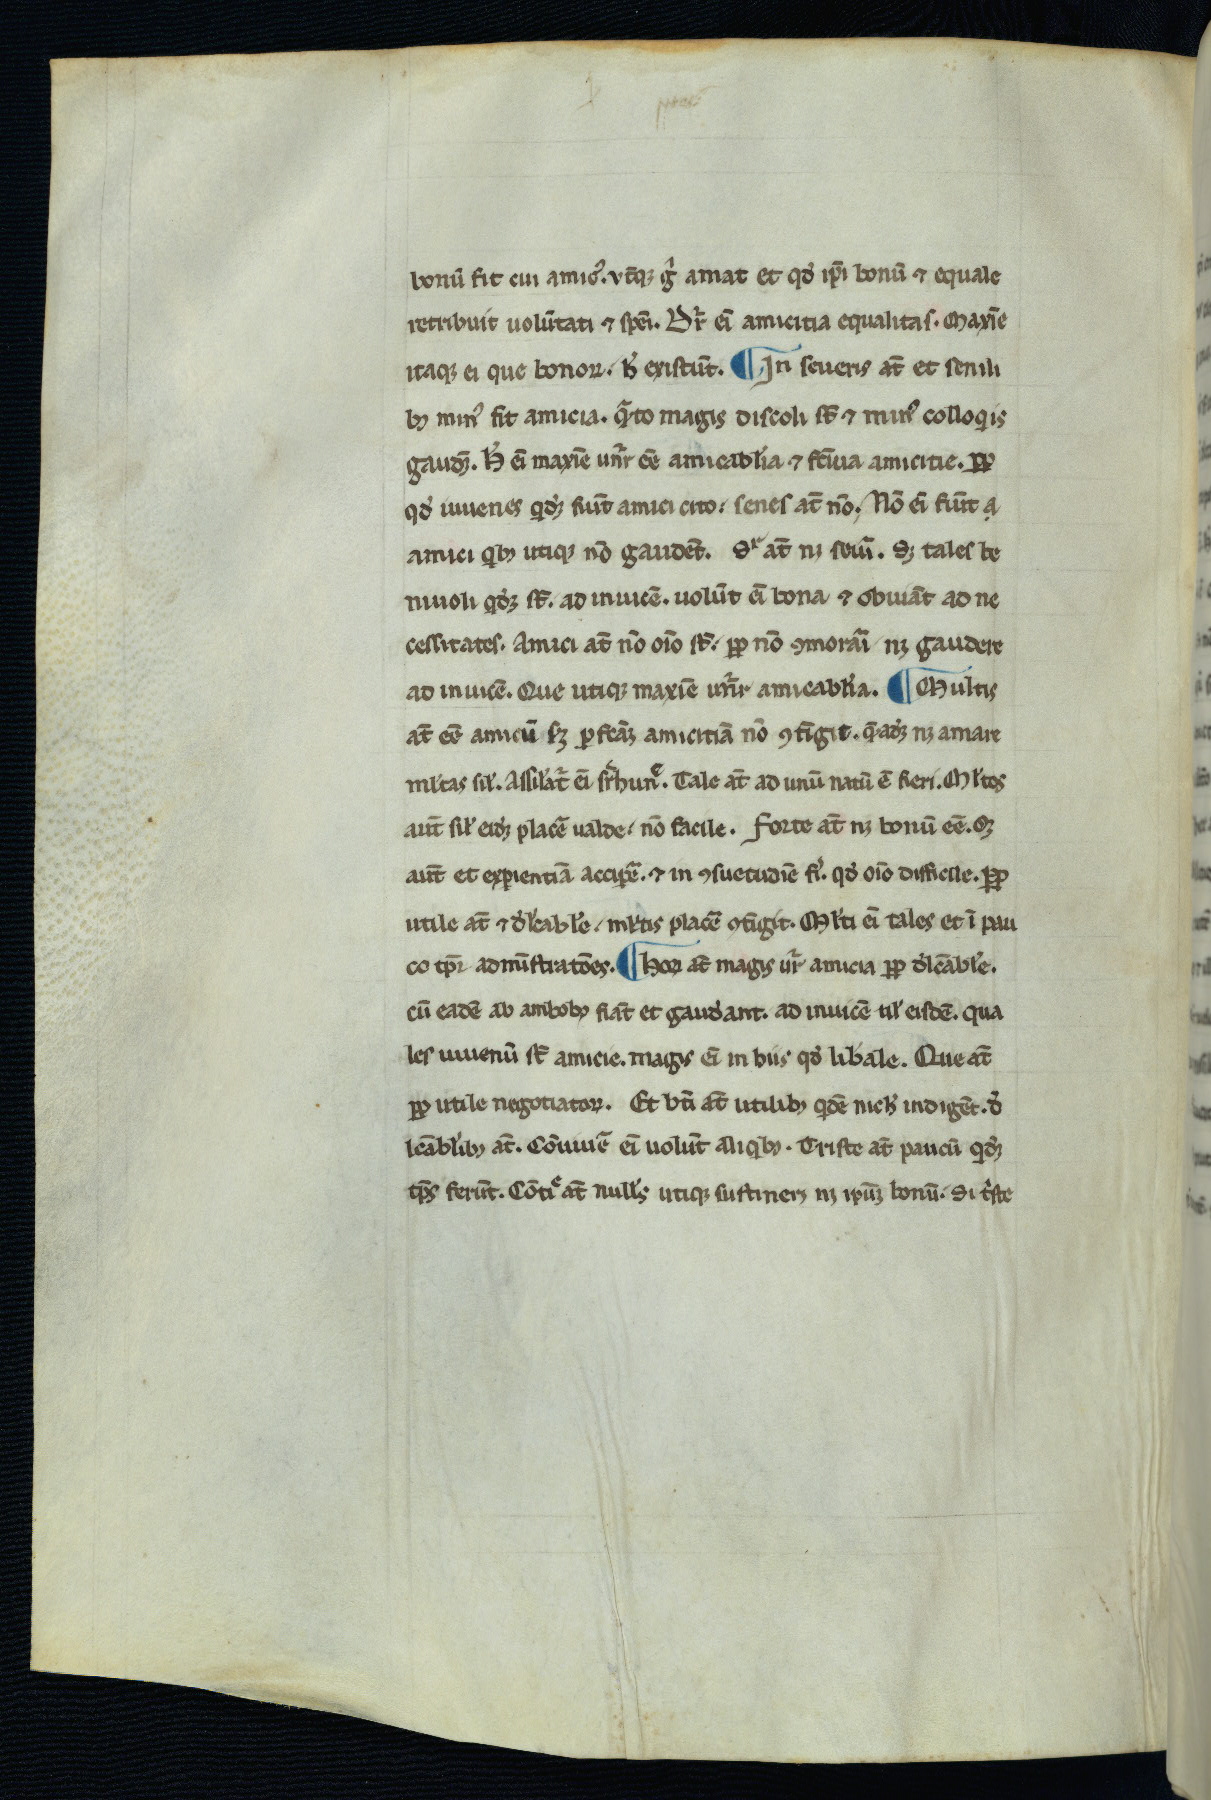 bonū fit cui amicꝰ. vtꝙꝫ gͦ amat et qđ ip̄i bonū ⁊ equale
retribuit uolūtati ⁊ sp̄ei. Dr̄ ei̅ amicitia equalitas. Maxīe
itaqꝫ ei que bonoꝝ. h̄ existūt. ¶ In seueris at̄ et senili
bꝫ minꝰ fit amicia. q̄to magis discoli s̄t ⁊ minꝰ colloqis
gaudꝫ. H̄ ei̅ maxīe unr̄ eē amicabl̓ia ⁊ fc̄iua amicitie. ꝓp
qđ iuuenes qđꝫ fiūt amici cito. senes at̄ nō. Nō ei̅ fiūt
amici qibꝫ utiqꝫ nō gaudēt. Sͬ at̄ nꝫ seui. Sꝫ tales be
niuoli qđꝫ s̄t. ad inuicē. uolūt ei̅ bona ⁊ obuiāt ad ne
cessitates. Amici at̄ nō oīo s̄t. ꝓp nō ꝯmorāi nꝫ gaudere
ad inuicē. Que utiqꝫ maxīe unr̄ amicabl̓ia. ¶ Multis
at̄ eē amicū sꝫ ꝑfcāꝫ amicitiā nō ꝯtīgit. q̄adꝫ nꝫ amare
ml̓tas sil̓. Assil̓at̄ ei̅ . Tale at̄ ad unū natū ē fieri. Ml̓tos
aūt sil̓ eidꝫ placē ualde. nō facile. Forte at̄ nꝫ bonū eē. Sꝫ
aūt et exꝑientiā acciꝑe. ⁊ in ꝯsuetudīe fi̓. qđ oīo difficile. ꝓp
utile at̄ ⁊ dl̓cabl̓e. ml̓tis placē ꝯtīgit. Ml̓ti ei̅ tales et ī pau
co tp̄r admīstratōes. ¶ hoꝝ at̄ magis ur̄ amicia ꝓp dl̓cabl̓e.
cū eadē ab ambobꝫ fiāt et gaudant. ad inuicē ul̓ eisdē. qua
les iuuenū s̄t amicie. magis ei̅ in hiis qđ libale. Que at̄
ꝓp utile negotiatoꝝ. Et bt̄i at̄ utilibꝫ qidē nich̓ indigēt. d̓
lcabl̓ibꝫ at̄. Cōuiuē ei̅ uolūt aliqibꝫ. Triste at̄ paucū qđꝫ
tp̄s ferūt. Cōtiᵉ at̄ nullꝰ utiqꝫ sustinerꝫ nꝫ ip̄ūꝫ bonū. Si tͥste